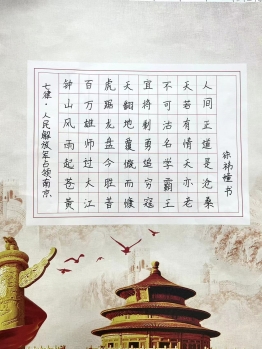 七律·人民解放军占领南京
钟山风雨起苍黄
百万雄师过大江
虎踞龙盘今胜昔
天翻地覆慨而慷
宜将剩勇追穷寇
不可沽名学霸王
天若有情天亦老
人间正道是沧桑
书